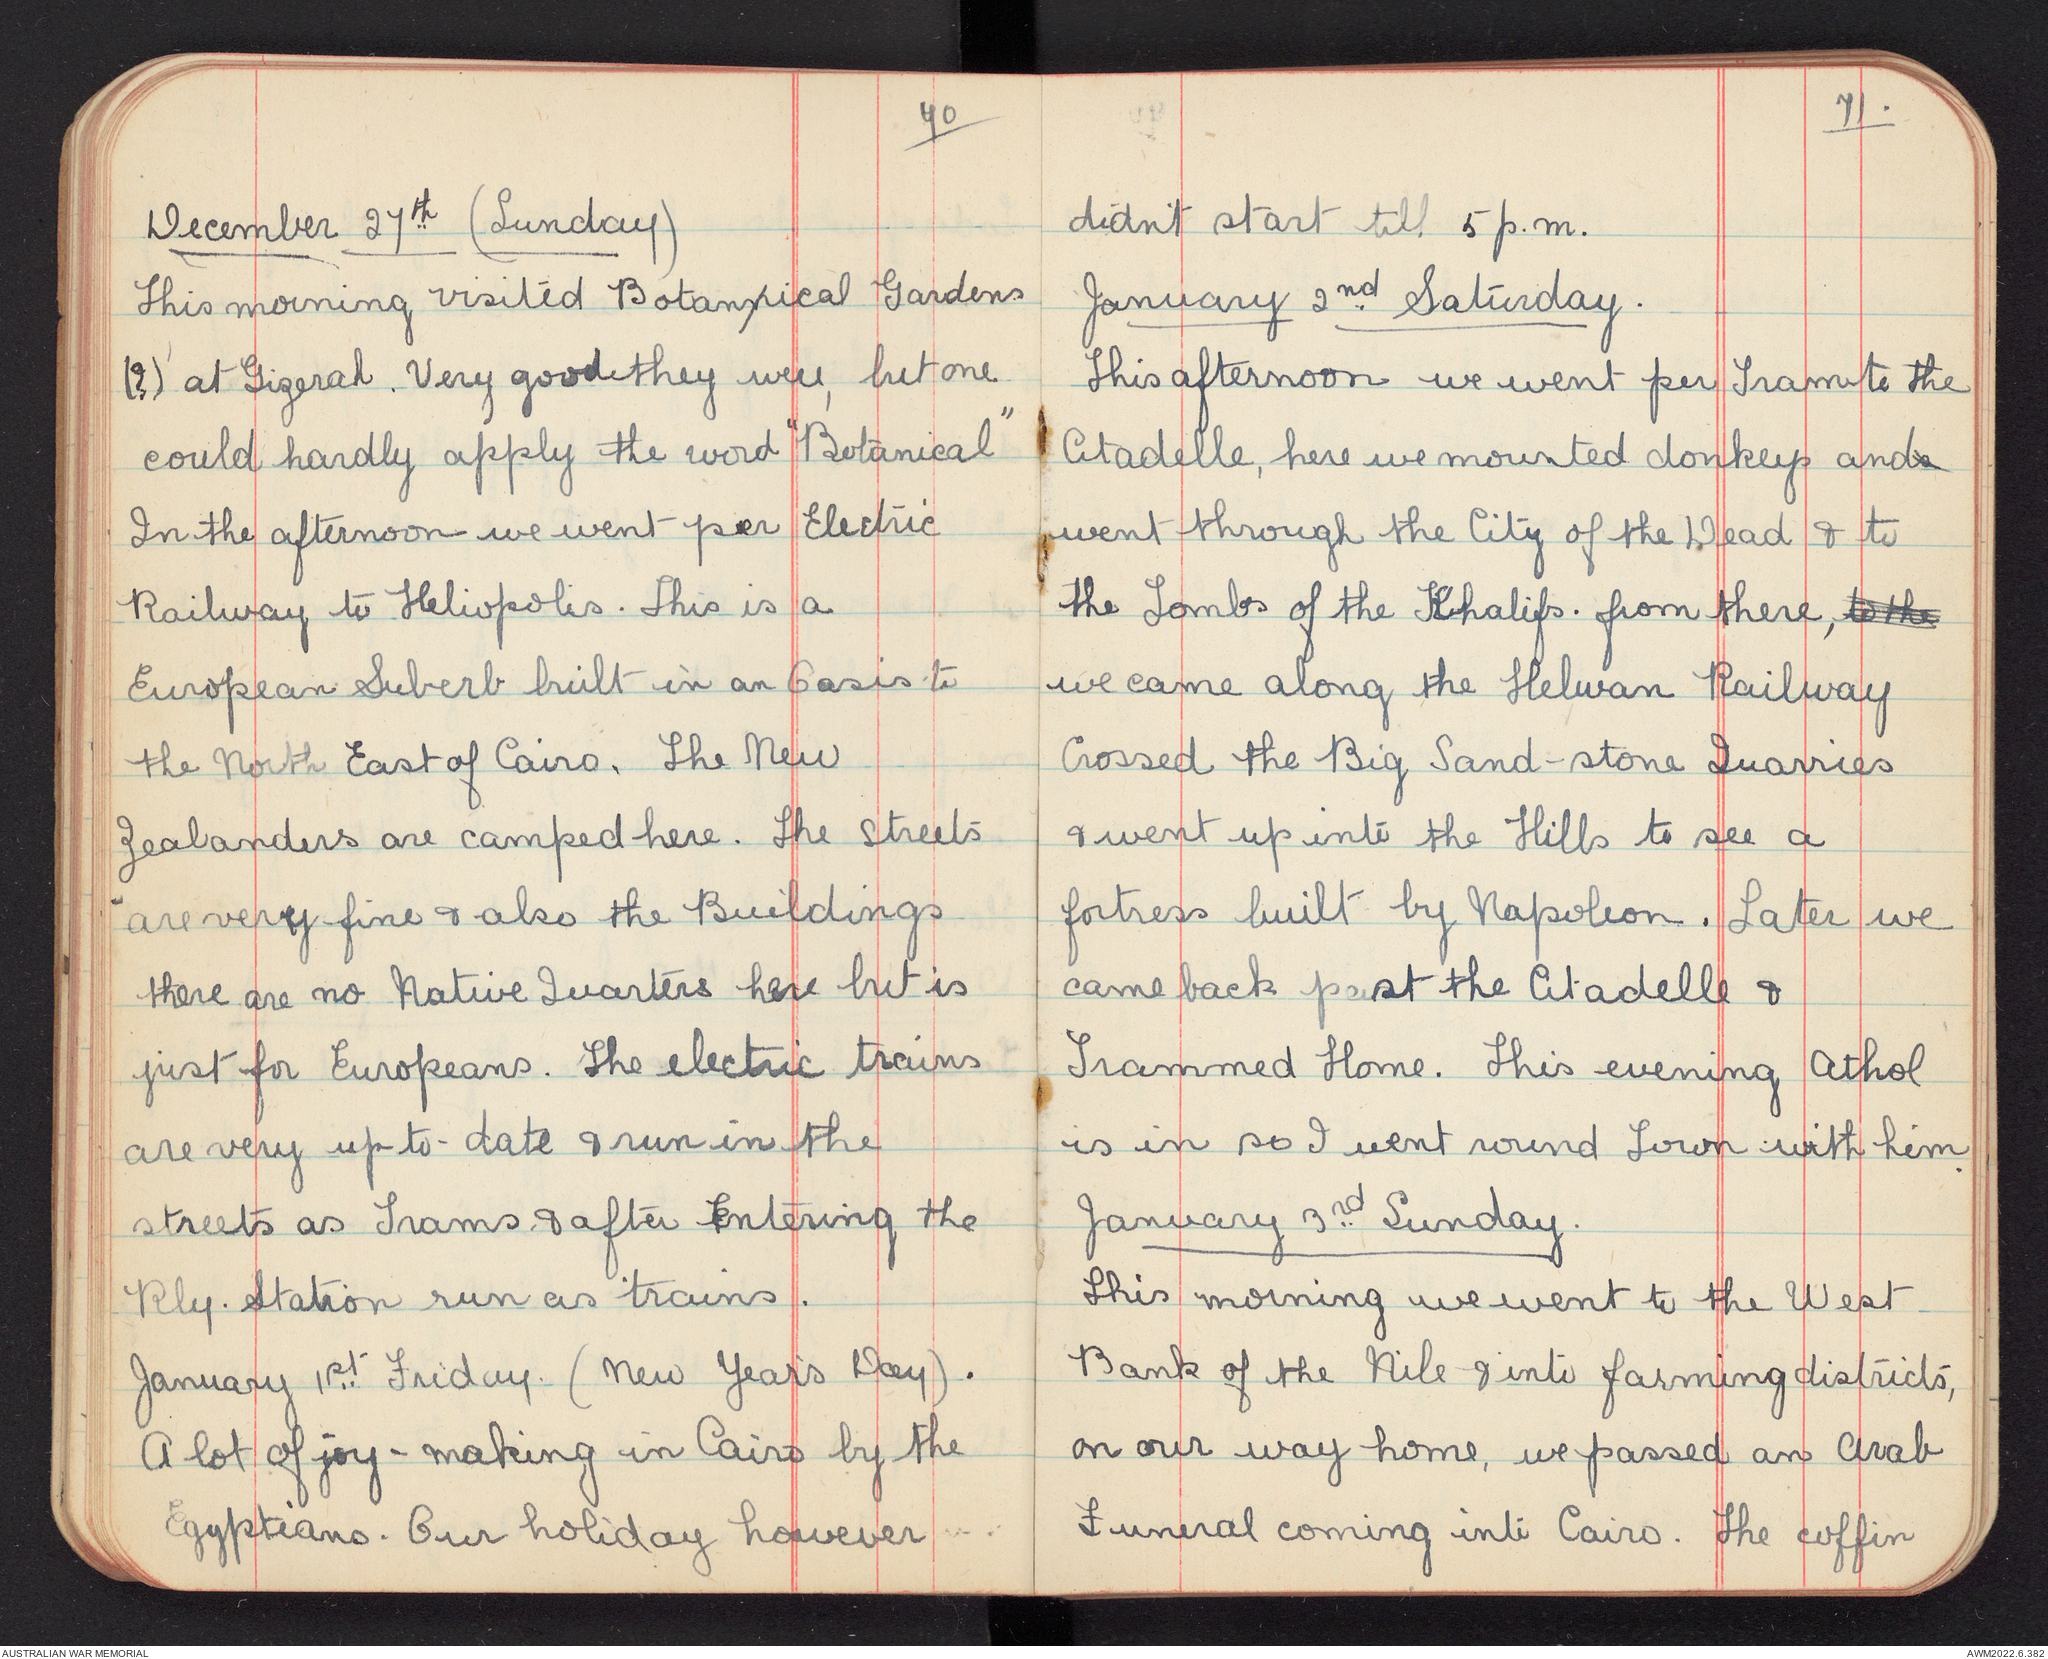 70
December 27th (Sunday)
This morning visited Botanical Gardens
(?) at Gizerah. Very good they were, but one
could hardly apply the word "Botanical"
In the afternoon we went per Electric
Railway to Heliopolis. This is a
European Suberb built in an Oasis to
the North East of Cairo. The New
Zealanders are camped here. The streets
are very fine & also the Buildings
there are no Native Quarters here but is
just for Europeans. The electric trains
are very up-to-date & run in the
streets as Trams & after Entering the
Rly. Station run as trains.
January 1st Friday. (New Year's Day).
A lot of joy-making in Cairo by the
Egyptians. Our holiday however
71.
didn't start till 5 p.m.
January 2nd Saturday.
This afternoon we went per Tram to the
Citadelle, here we mounted donkeys and
went through the City of the Dead & to
the Tombs of the Khalifs. from there, to the
we came along the Helwan Railway
Crossed the Big Sand-stone Quarries
& went up into the Hills to see a
fortress built by Napoleon. Later we
came back past the Citadelle &
Trammed Home. This evening Athol
is in so I went round Town with him.
January 3rd Sunday.
This morning we went to the West
Bank of the Nile & into farming districts,
on our way home, we passed an Arab
Funeral coming into Cairo. The coffin
AUSTRALIAN WAR MEMORIAL
AWM2022.6.382